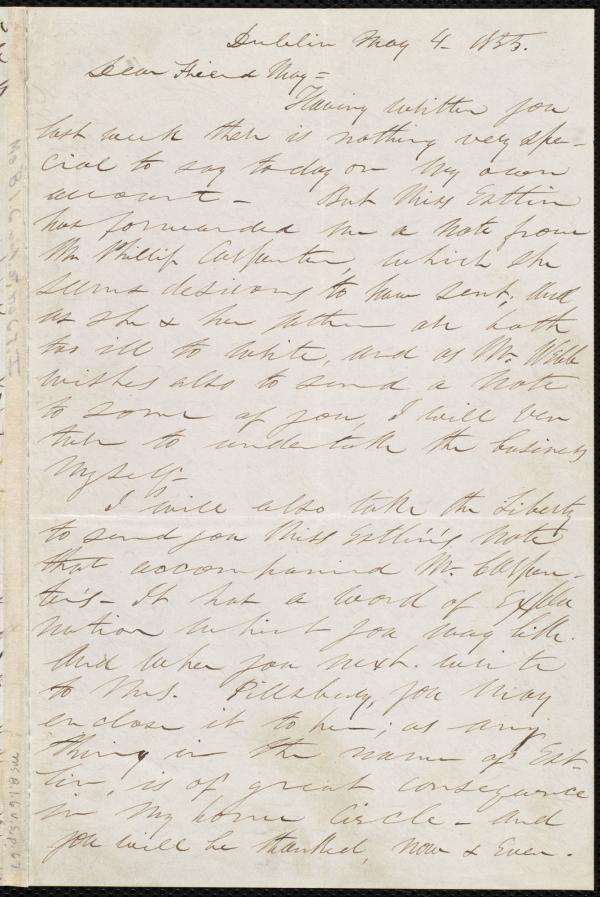 Dublin May 4- 1855.
Dear Friend May =
Having written you
last week there is nothing very spe-
cial to say to day on my own
account - But Miss Estlin
has forwarded me a note from
Mr. Phillip Carpenter, which she
seems desirous to have sent; and
as she & her father are both
too ill to write, and as Mr. Webb
wishes also to send a note
to some of you, I will ven
ture to undertake the business
myself-
I will also take the Liberty
to send you Miss Estlin's note
that accompanied Mr. Carpen-
ter's - It has a word of Expla
nation which you may like.
And when you next write
to Mrs. Pillsbury, you may
enclose it to her; as any
thing in the name of Est-
lin, is of great consequence
in my home circle - and
you will be thanked, now & Ever.